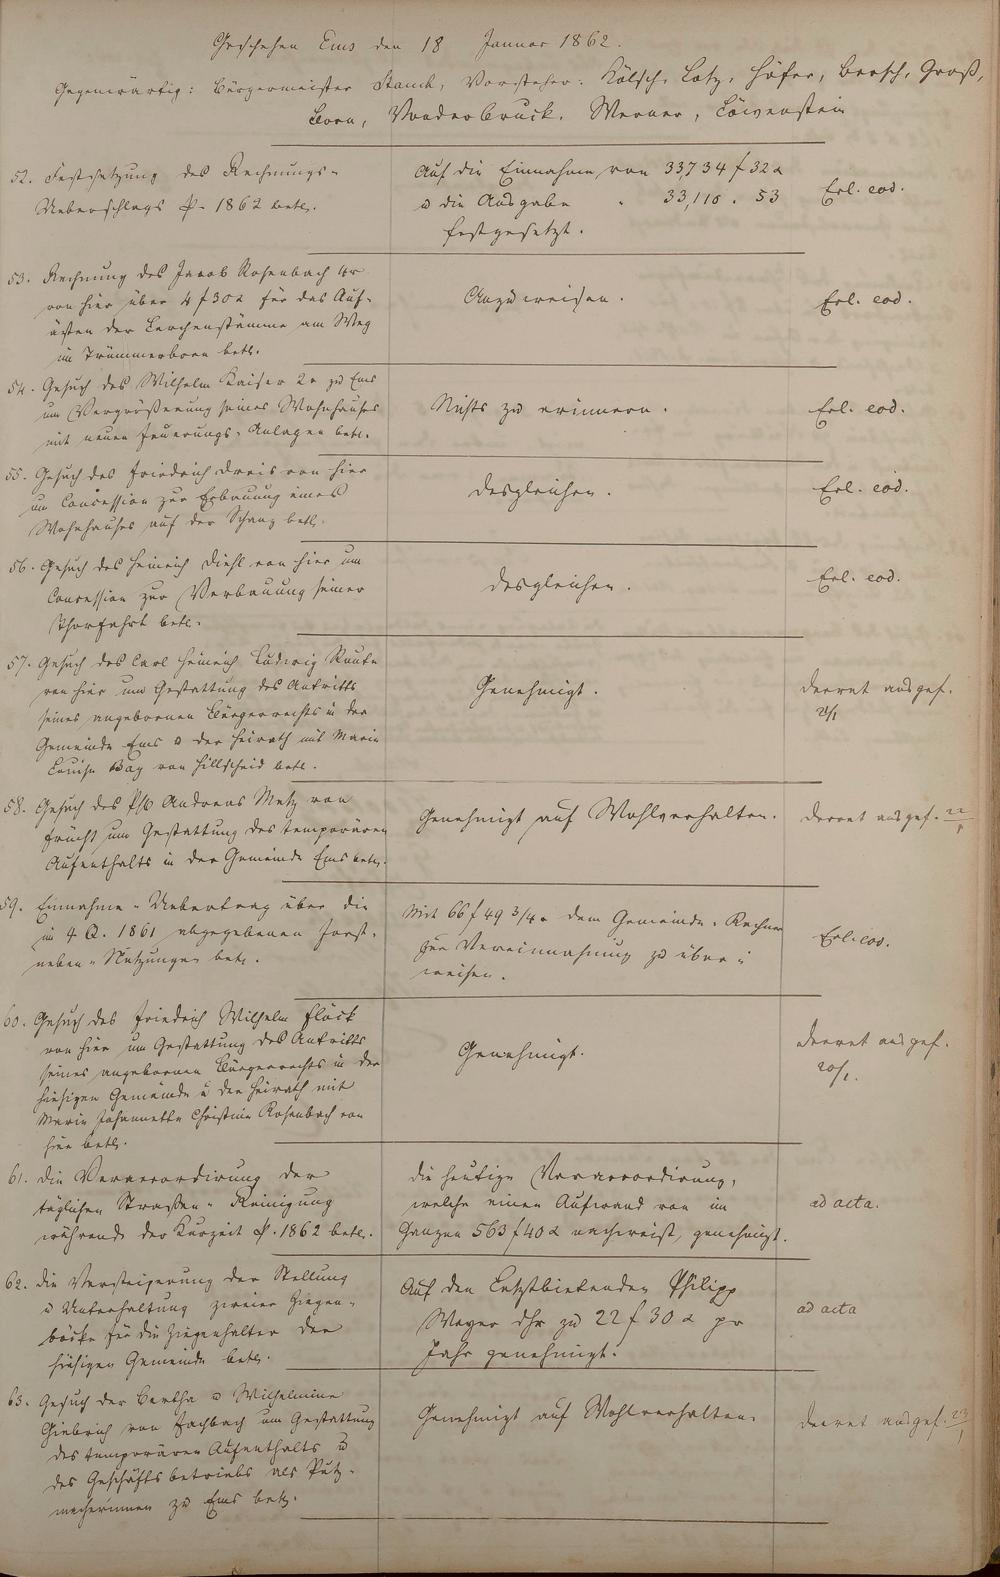 Geschehen Ems den 18 Januar 1862.
Gegenwärtig: Bürgermeister Stamch, Vorsteher: Kölsch, Lotz, Höfer, Beesch, Groß,
Born, Vonderbruck, Werner, Löwenstein
52. Festsetzung des Rechnungs-
Ueberschlags p. 1862 betr.
Auf die Einnahme von 33,734 f 32 x
u die Ausgabe " 33,110 . 53
festgesetzt.
Erl. eod.
53. Rechnung des Jacob Rosenbach 4r
von hier über 4 f 30 x für das Auf-
ästen der Lerchenstämme am Weg
im Trümmerborn betr.
Anzuweisen.
Erl. eod.
54. Gesuch des Wilhelm Kaiser 2r zu Ems
um Vergrößerung seines Wohnhauses
mit neuen Feuerungs-Anlagen betr.
Nichts zu erinnern.
Erl. eod.
55. Gesuch des Friedrich Dreis von hier
um Concession zur Erbauung eines
Wohnhauses auf der Schanz betr.
desgleichen.
Erl. eod.
56. Gesuch des Heinrich Diehl von hier um
Concession zur Verbauung seiner
Thorfahrt betr.
desgleichen.
Erl. eod.
57. Gesuch des Carl Heinrich Ludwig
von hier um Gestattung des Antritts
seines angebornen Bürgerrechts in der
Gemeinde Ems u der Heirath mit Maria
Louise Bay von Hillscheid betr.
Genehmigt.
Decret ausgef.
21/1
58. Gesuch des Andreas Metz von
Frücht um Gestattung des temporären
Aufenthalts in der Gemeinde Ems betr.
Genehmigt auf Wohlverhalten.
Decret ausgef. 22/1
59. Einnahme-Uebertrag über die
im 4 Q. 1861 abgegebenen Forst-
neben-Nutzungen betr.
Mit 66 f 49 3/4 x dem Gemeinde-Rechner
zur Vereinnahmung zu über-
weisen.
Erl. eod.
60. Gesuch des Friedrich Wilhelm Flöck
von hier um Gestattung des Antritts
seines angebornen Bürgerrechts in der
hiesigen Gemeinde u der Heirath mit
Maria Johannette Christine Rosenbach von
hier betr.
Genehmigt.
Decret ausgef.
20/1.
61. Die Veraccordirung der
täglichen Straßen-Reinigung
während der Kurzeit p. 1862 betr.
Die heutige Veraccordirung,
welche einen Aufwand von im
Ganzen 563 f 40 x nachweist, genehmigt.
ad acta.
62. Die Versteigerung der Stellung
u Unterhaltung zweier Ziegen-
böcke für die Ziegenhalter der
hiesigen Gemeinde betr.
Auf den Letztbietenden Philipp
Weyer dhr zu 22 f 30 x pr
Jahr genehmigt.
ad acta
63. Gesuch der Bertha u Wilhelmine
von Fachbach um Gestattung
des temporären Aufenthalts u
des Geschäftsbetriebs als Putz-
macherinnen zu Ems betr.
Genehmigt auf Wohlverhalten.
Decret ausgef. 23/1